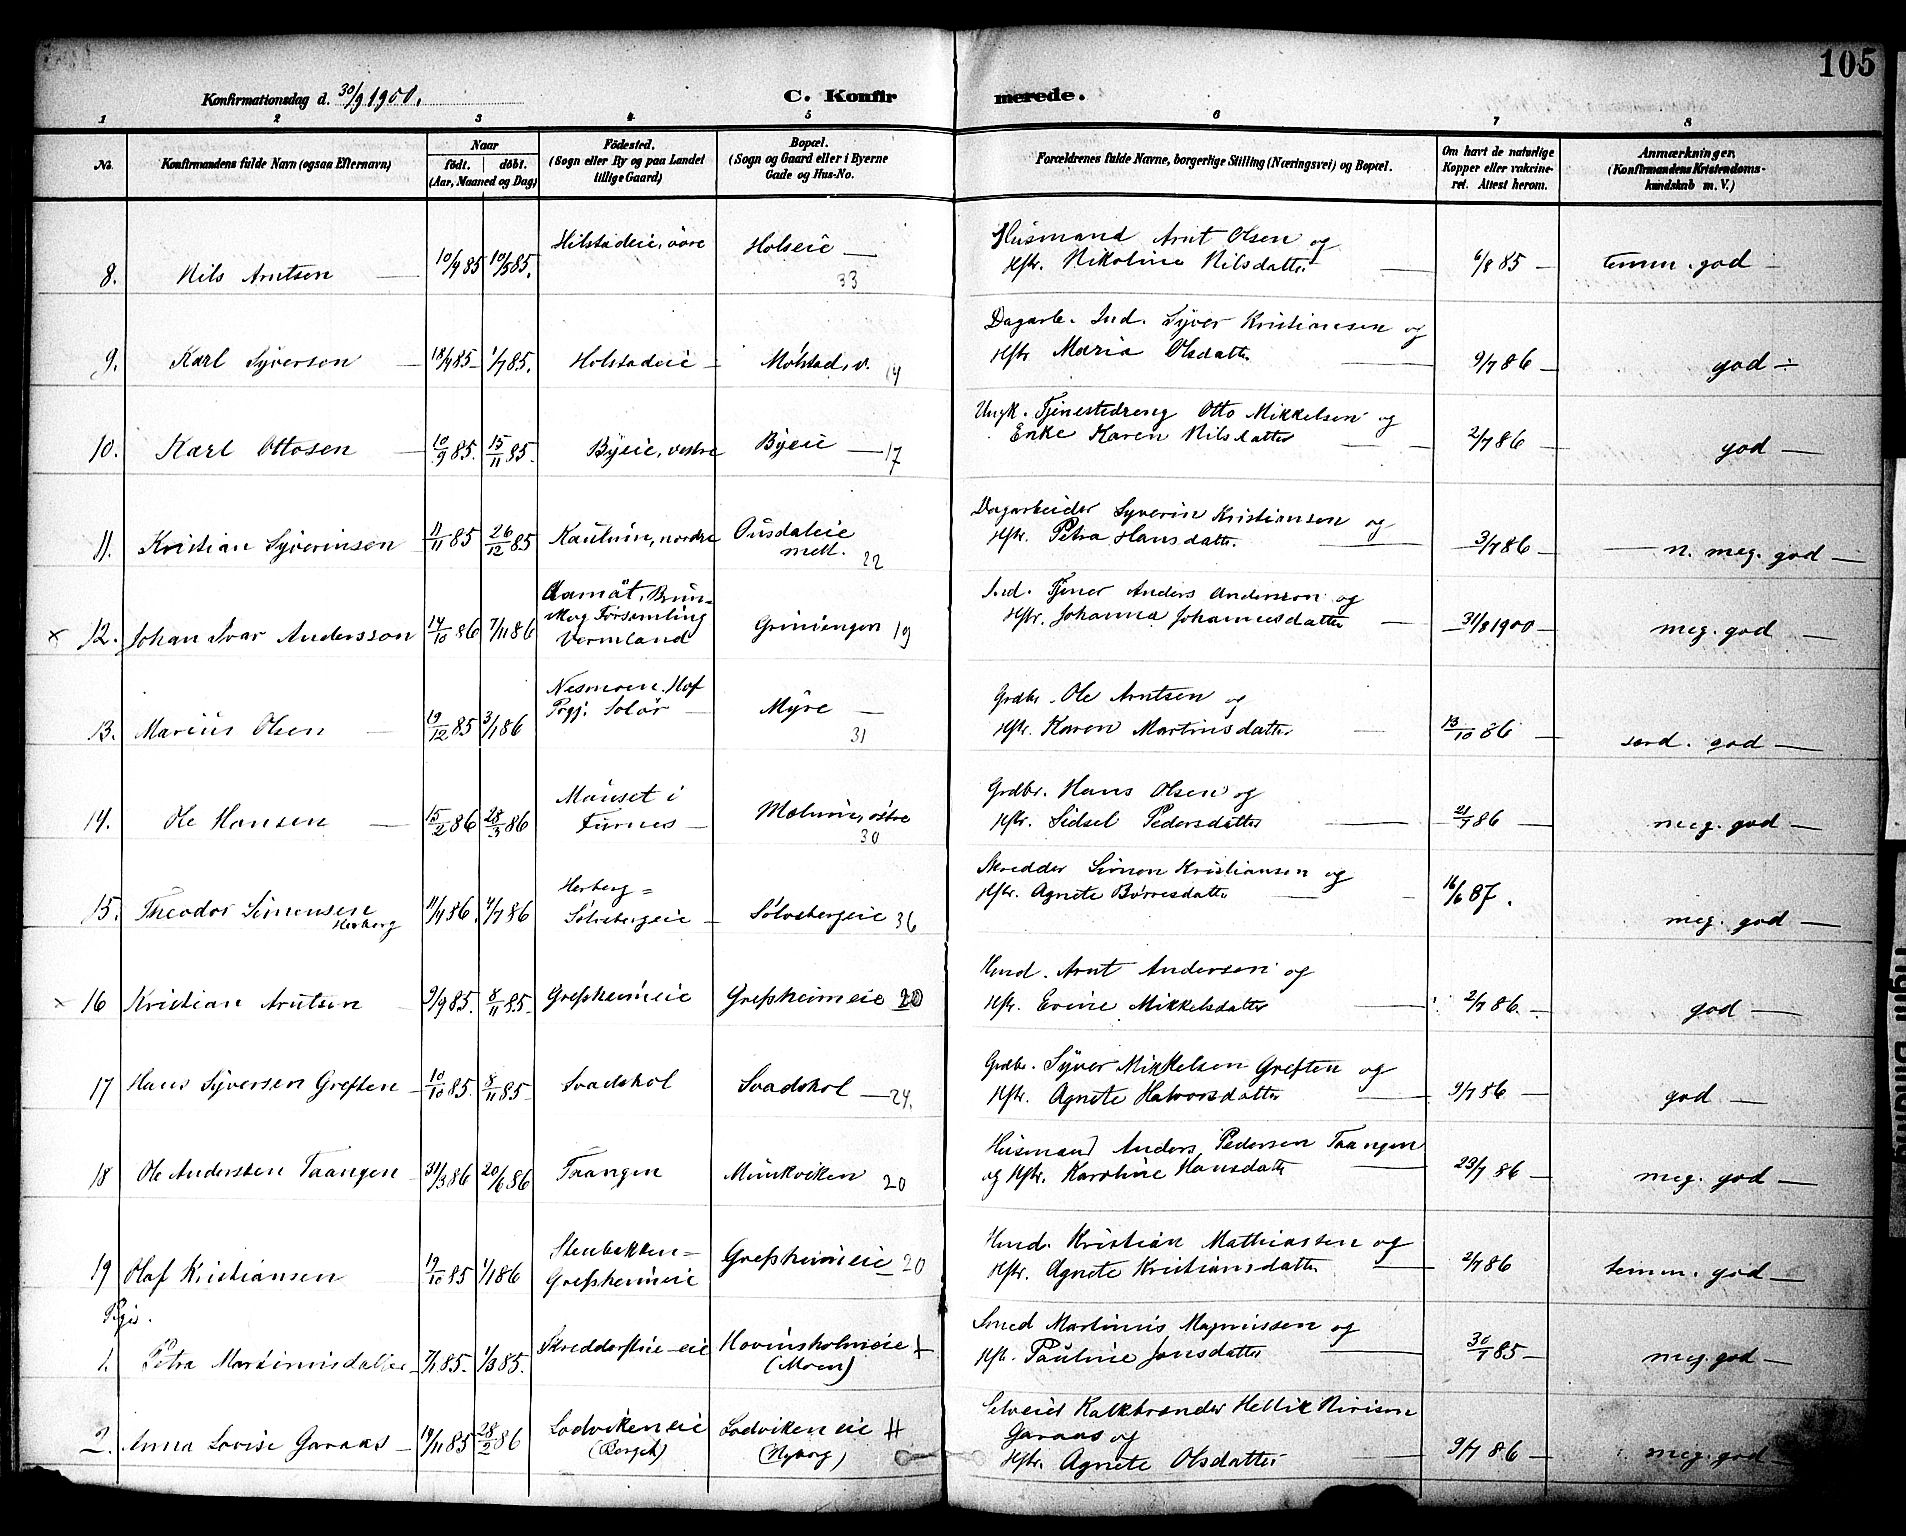 105
Konfirmationsdag d. 30/9 1900.
C. Konfirmerede.
1 2 3 4 5 6 7 8
No.
Konfirmandens fulde Navn (ogsaa Efternavn)
Naar
født. døbt.
(Aar, Maaned og Dag)
Fødested.
(Sogn eller By og paa Landet
tillige Gaard)
Bopæl.
(Sogn og Gaard eller i Byerne
Gade og Hus-No.
Forældrenes fulde Navne, borgerlige Stilling (Næringsvei) og Bopæl.
Om havt de naturlige
Kopper eller vakcine-
ret. Attest herom.
Anmærkninger.
(Konfirmandens Kristendoms-
kundskab m. V.)
8. Nils Arntsen — 10/4 85 10/5 85. Hilstadeie, øvre Holseie — 33
Husmand Arnt Olsen og
Hstr. Nikoline Nilsdatter — 6/8 85 — temm. god —
9. Karl Syversen — 18/4 85 — 1/7 85. Holstadeie — Molstad, v. 14
Dagarb. Ind. Syver Kristiansen og
Hstr Maria Olsdatter — 9/7 86 — god —
10. Karl Ottosen — 10/9 85. 15/11 85. Byeie, vestre Byeie — 17
Ungk. Tjenestedreng Otto Mikkelsen og
Enke Karen Nilsdatter — 2/7 86 — god —
11. Kristian Syverinsen 11/11 85 26/12 85 nordre mell. 22
Dagarbeider Syverin Kristiansen og
Hstr. Petra Hansdatter. — 3/7 86 — n. meg. god —
x 12. Johan Ivar Andersson 14/10 86 7/11 86
Forsamling
Vermland
19
Ind. Tjener Anders Andersson og
Hstr. Johanna Johannesdatter — 31/8 1900 — meg. god —
13. Marius Olsen — 19/12 85 3/1 86 Nesmoen. Hof
Prgj. Solør — Myre — 31
Grdbr. Ole Arntsen og
Hstr. Karen Martinsdatter — 13/10 86 — god —
14. Ole Hansen — 15/2 86 28/3 86 Mauset i
Furnes — østre 30
Grdbr. Hans Olsen og
Hstr. Sidsel Pedersdatter — 21/7 86 — meg. god —
15. Theodor Simensen
Herberg
11/4 86. 4/7 86 Herberg =
Sølvsbergeie — Sølvsbergeie 36
Skredder Simon Kristiansen og
Hstr. Agnete Børresdatter — 16/6 87. meg. god —
x 16 Kristian Arntsen — 9/9 85. 8/11 85. Grefsheimeie Grefsheimeie 20
Hmd. Arnt Andersen og
Hstr. Evine Mikkelsdatter — 2/7 86. — god —
17 Hans Syversen Greften — 10/10 85. 8/11 85. Svadskol Svadskol — 24.
Grdbr. Syver Mikkelsen Greften og
Hstr. Agnete Halvorsdatter — 9/7 86 — god —
18 Ole Andersen Taangen 31/3 86 20/6 86 Taangen Munkviken 20
Husmand Anders Pedersen Taangen
og Hstr. Karoline Hansdatter — 23/7 86 — meg. god —
19 Olaf Kristiansen 19/10 85 1/1 86 Stenbekken =
Grefsheimeie Grefsheimeie — 20
Hmd. Kristian Mathiassen og
Hstr. Agnete Kristiansdatter — 2/7 86 temm. god —
Pige.
1. Petra Martinusdatter — 7/1 85. 1/3 85. Hovinsholmeie
(Moen)
Smed Martinus Magnussen og
Hstr. Pauline Jonsdatter — 30/7 85 — meg. god —
2. Anna Lovise Garaas — 19/11 85 28/2 86 Lodvikeneie
(Berget)
Lodvikeneie
(Nyborg)
Selveier Kalkbrænder
Garaas og
Hstr. Agnete Olsdatter — 9/7 86 — meg. god —